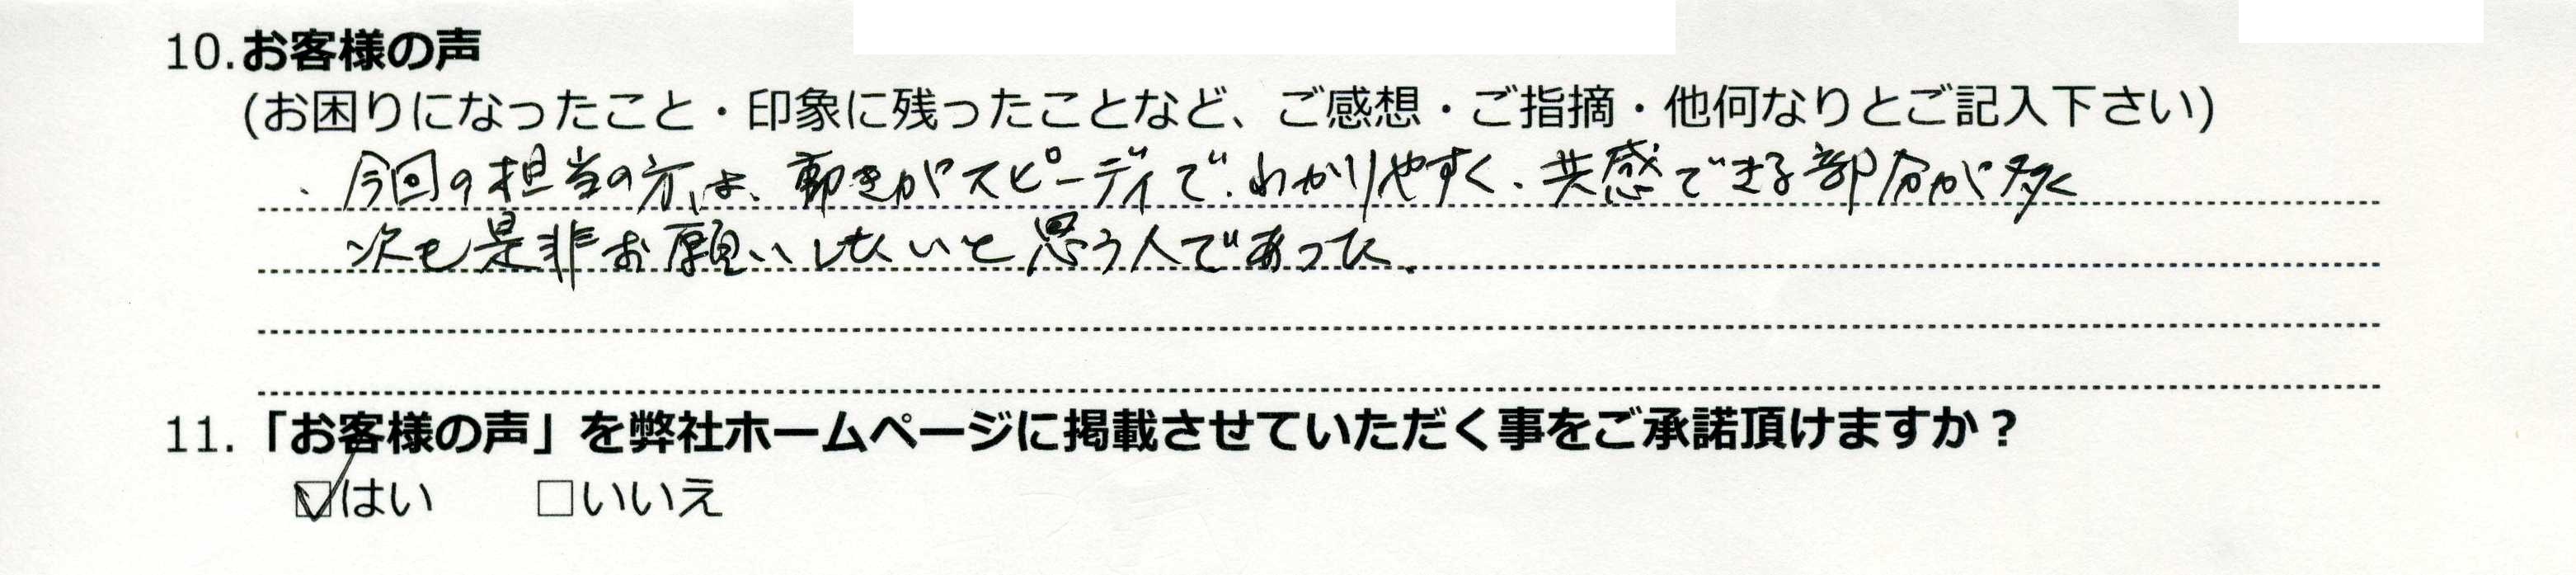 10.お客様の声
(お困りになったこと・印象に残ったことなど、ご感想・ご指摘・他何なりとご記入下さい)
・今回の担当の方は、動きがスピーディで、わかりやすく、共感できる部分が多く
次も是非お願いしたいと思う人であった.
11.「お客様の声」を弊社ホームページに掲載させていただく事をご承諾頂けますか？
☑はい　□いいえ